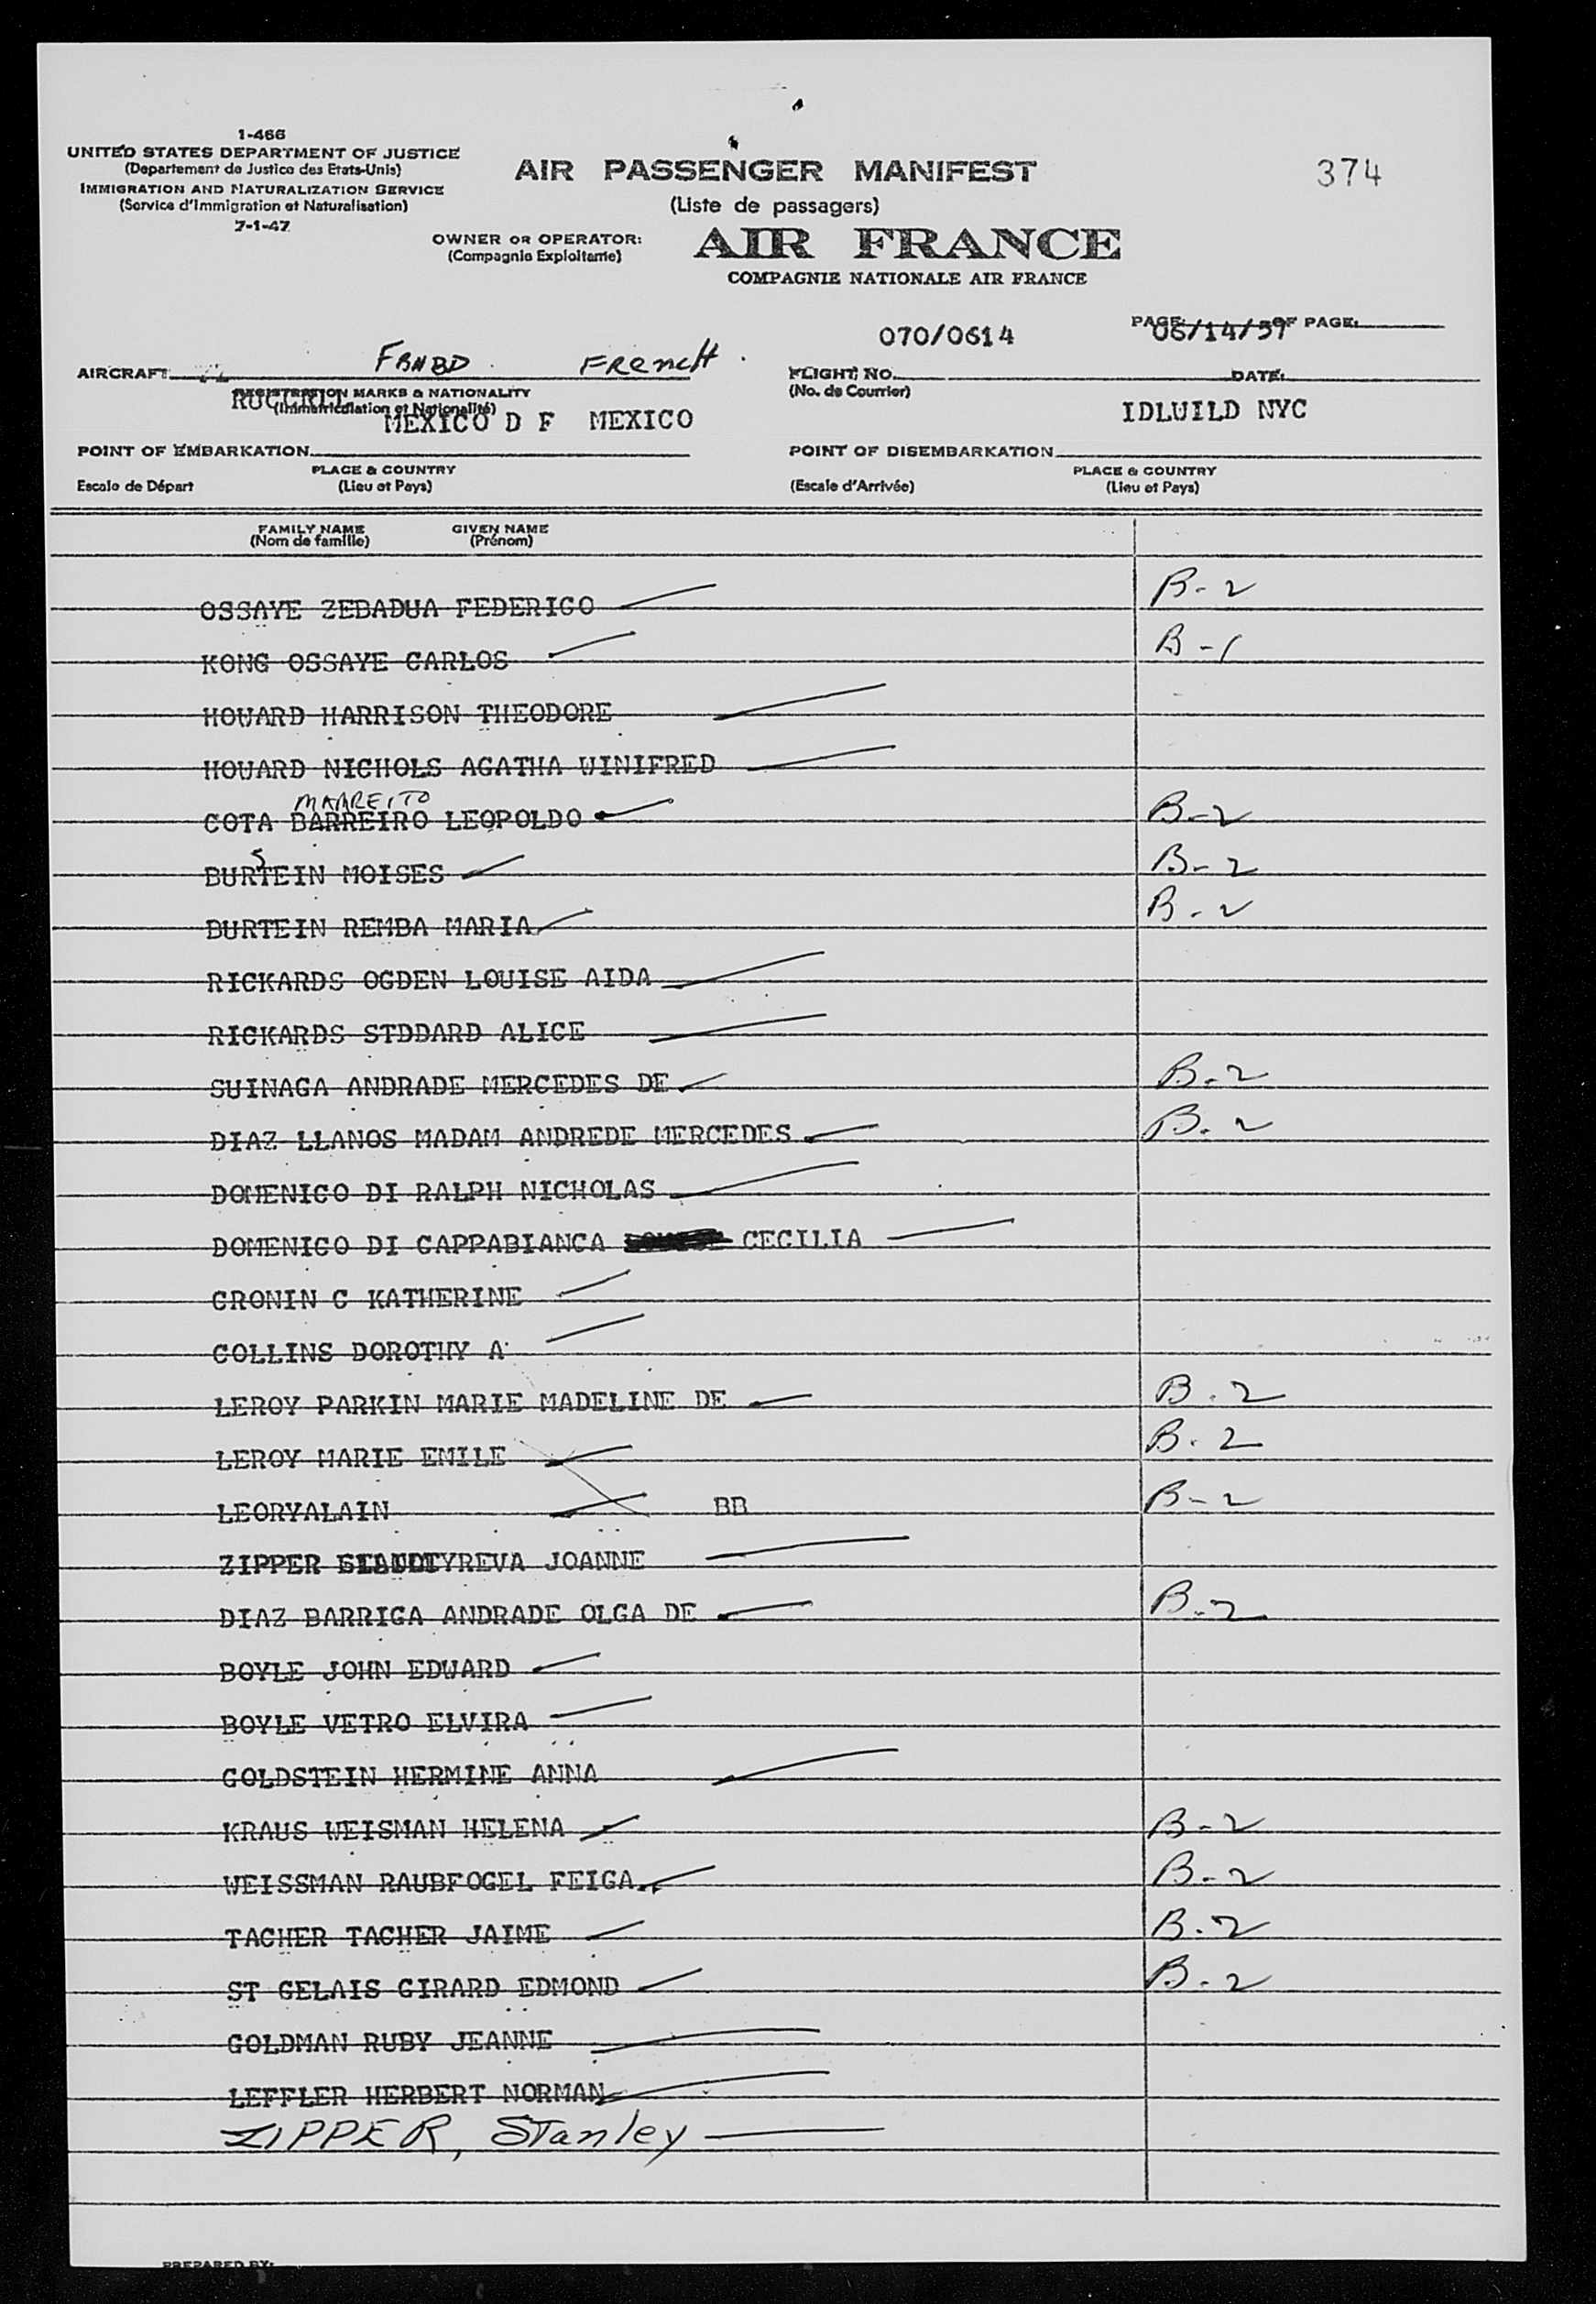 1-466
UNITED STATES DEPARTMENT OF JUSTICE
(Departement de Justice des Etats-Unis)
IMMIGRATION AND NATURALIZATION SERVICE
(Service d'Immigration et Naturalisation)
7-1-47
AIR PASSENGER MANIFEST
(Liste de passagers)
374
OWNER OR OPERATOR:
(Compagnie Exploitante)
AIR FRANCE
COMPAGNIE NATIONALE AIR FRANCE
070/0614
PAGE: OF PAGE:
06/14/57
AIRCRAFT FBHBD FRencH
FLIGHT NO. DATE:
(No. de Courrier)
REGISTRATION MARKS & NATIONALITY
(Immatriculation et Nationalité)
MEXICO D F MEXICO
IDLUILD NYC
POINT OF EMBARKATION
POINT OF DISEMBARKATION
PLACE & COUNTRY
PLACE & COUNTRY
Escale de Départ (Lieu et Pays)
(Escale d'Arrivée) (Lieu et Pays)
FAMILY NAME GIVEN NAME
(Nom de famille) (Prénom)
OSSAYE ZEBADUA FEDERICO B-2
KONG OSSAYE CARLOS B-1
HOUARD HARRISON THEODORE
HOUARD NICHOLS AGATHA WINIFRED
MARREITO
COTA BARREIRO LEOPOLDO B-2
S
BURTEIN MOISES B-2
BURTEIN REMBA MARIA B-2
RICKARDS OGDEN LOUISE AIDA
RICKARDS STDDARD ALICE
SUINAGA ANDRADE MERCEDES DE B-2
DIAZ LLANOS MADAM ANDREDE MERCEDES B-2
DOMENICO DI RALPH NICHOLAS
DOMENICO DI CAPPABIANCA CECILIA
CRONIN C KATHERINE
COLLINS DOROTHY A
LEROY PARKIN MARIE MADELINE DE B-2
LEROY MARIE EMILE B-2
LEORYALAIN BB B-2
ZIPPER JOANNE
DIAZ BARRIGA ANDRADE OLGA DE B-2
BOYLE JOHN EDWARD
BOYLE VETRO ELVIRA
GOLDSTEIN HERMINE ANNA
KRAUS WEISMAN HELENA B-2
WEISSMAN RAUBFOGEL FEIGA B-2
TACHER TACHER JAIME B-2
ST GELAIS GIRARD EDMOND B-2
GOLDMAN RUBY JEANNE
LEFFLER HERBERT NORMAN
ZIPPER, Stanley
PREPARED BY: